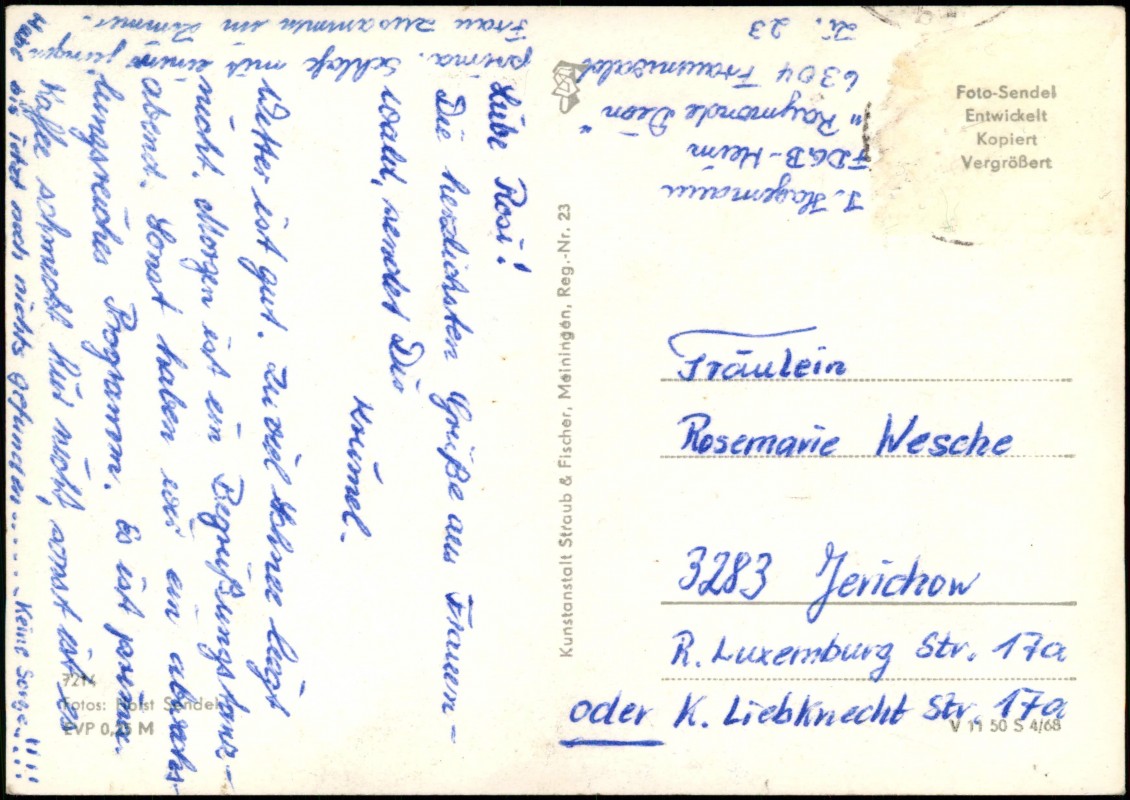 Liebe Rosi!
Die herzlichsten Grüße aus Frauen-
wald, sendet Dir
Krümel.
Wetter ist gut. Zu viel Schnee liegt
nicht. Morgen ist ein Begrüßungstanz-
abend. Sonst haben wir ein abwechs-
lungsreiches Programm. Es ist prima.
Kaffee schmeckt hier nicht, sonst ist es
prima. Schlafe mit einer jungen
Frau zusammen im Zimmer.
bis jetzt noch nichts gefunden..... Keine Sorge..!!!!
J. Hagemann
FDGB-Heim
"Raymonde Dien"
6304 Frauenwald
Zi. 23
Foto-Sendel
Entwickelt
Kopiert
Vergrößert
Kunstanstalt Straub & Fischer, Meiningen, Reg.-Nr. 23
Fräulein
Rosemarie Wesche
3283 Jerichow
R. Luxemburg Str. 17a
oder K. Liebknecht Str. 17a
7214
Fotos: Horst Sendel
EVP 0,25 M
V 11 50 S 4/68